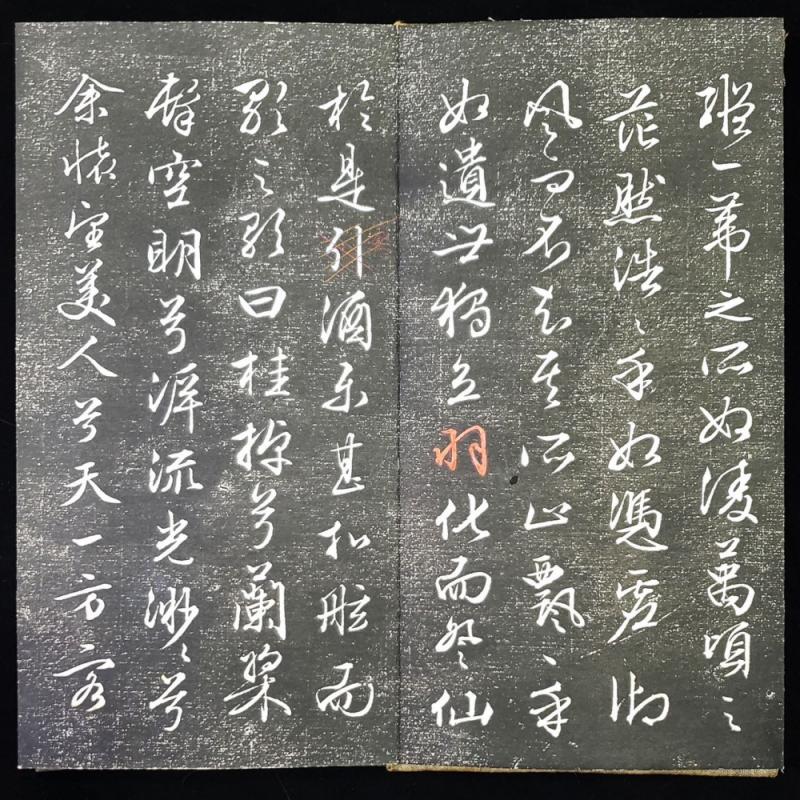 縱一葦之所如淩萬頃之
茫然浩々乎如馮虛御
風而不知其所止飄々乎
如遺世獨立羽化而登仙
於是引酒樂甚扣舷而
歌之歌曰桂棹兮蘭槳
擊空明兮泝流光渺々兮
余懷望美人兮天一方客